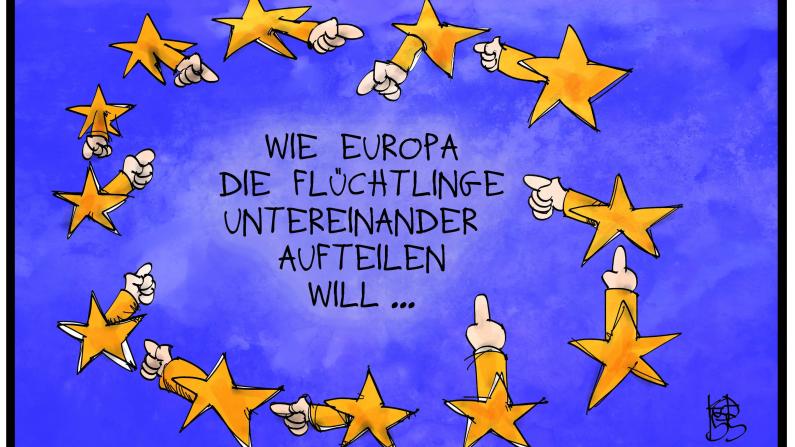 WIE EUROPA
DIE FLÜCHTLINGE
UNTEREINANDER
AUFTEILEN
WILL ...